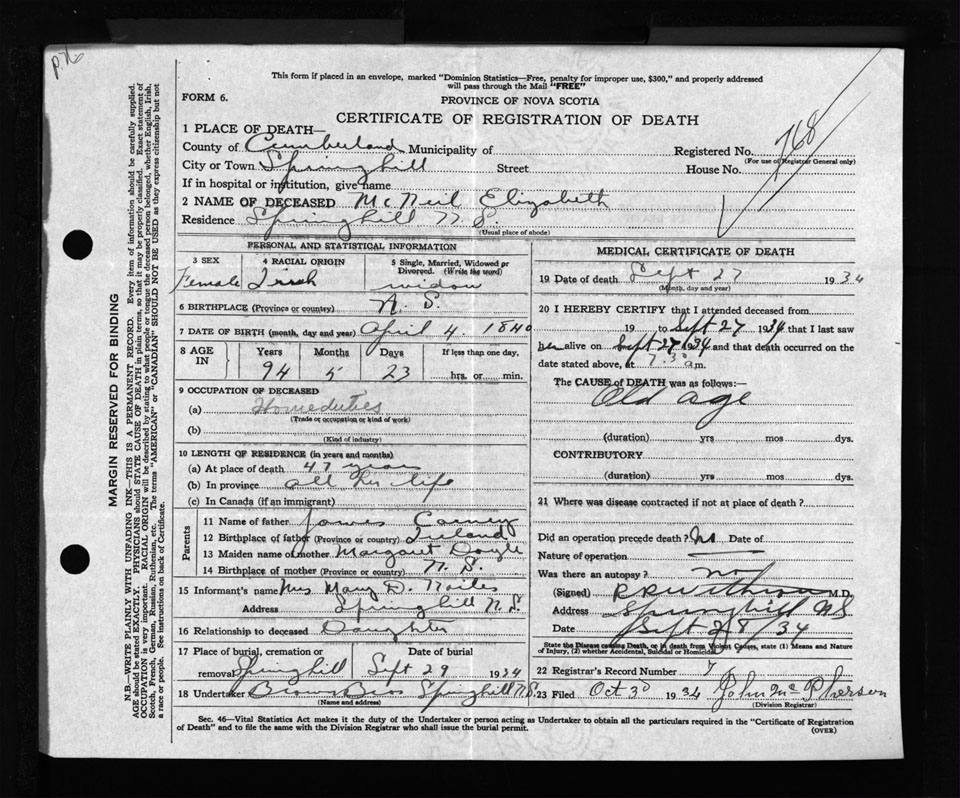 p76
This form if placed in an envelope, marked "Dominion Statistics—Free, penalty for improper use, $300," and properly addressed
will pass through the Mail "FREE"
FORM 6.
PROVINCE OF NOVA SCOTIA
CERTIFICATE OF REGISTRATION OF DEATH
1 PLACE OF DEATH—
County of Cumberland Municipality of Registered No. 768
(For use of Registrar General only)
City or Town Springhill Street House No.
If in hospital or institution, give name
2 NAME OF DECEASED McNeil Elizabeth
Residence Springhill N. S.
(Usual place of abode)
PERSONAL AND STATISTICAL INFORMATION
3 SEX 4 RACIAL ORIGIN 5 Single, Married, Widowed or Divorced. (Write the word)
Female Irish widow
6 BIRTHPLACE (Province or country) N. S.
7 DATE OF BIRTH (month, day and year) April 4. 1840
8 AGE IN Years Months Days If less than one day,
94 5 23 hrs. or min.
9 OCCUPATION OF DECEASED
(a) Homeduties
(Trade or occupation or kind of work)
(b)
(Kind of industry)
10 LENGTH OF RESIDENCE (in years and months)
(a) At place of death 47 years
(b) In province all her life
(c) In Canada (if an immigrant)
Parents
11 Name of father James Carney
12 Birthplace of father (Province or country) Ireland
13 Maiden name of mother Margaret Doyle
14 Birthplace of mother (Province or country) N. S.
15 Informant's name Mrs Mary D.
Address Springhill N. S.
16 Relationship to deceased Daughter
17 Place of burial, cremation or removal Date of burial
Springhill Sept 29 1934
18 Undertaker Brown Bros Springhill N.S.
(Name and address)
MEDICAL CERTIFICATE OF DEATH
19 Date of death Sept 27 1934
(Month, day and year)
20 I HEREBY CERTIFY that I attended deceased from
19 to Sept 27 1934 that I last saw
her alive on Sept 27 1934 and that death occurred on the
date stated above, at 7.30 a m.
The CAUSE OF DEATH was as follows:—
Old age
(duration) yrs mos dys.
CONTRIBUTORY
(duration) yrs mos dys.
21 Where was disease contracted if not at place of death?
Did an operation precede death? No Date of
Nature of operation
Was there an autopsy? no
(Signed) M.D.
Address Springhill NS
Date Sept 28/34
State the Disease causing Death, or in death from Violent Causes, state (1) Means and Nature of Injury, (2) whether Accidental, Suicidal or Homicidal
22 Registrar's Record Number 7
23 Filed Oct 3d 1934 John McPherson
(Division Registrar)
Sec. 46—Vital Statistics Act makes it the duty of the Undertaker or person acting as Undertaker to obtain all the particulars required in the "Certificate of Registration
of Death" and to file the same with the Division Registrar who shall issue the burial permit.
(OVER)
MARGIN RESERVED FOR BINDING
N.B.—WRITE PLAINLY WITH UNFADING INK—THIS IS A PERMANENT RECORD. Every item of information should be carefully supplied.
AGE should be stated EXACTLY. PHYSICIANS should STATE CAUSE OF DEATH in plain terms, so that it may be properly classified. Exact statement of
OCCUPATION is very important. RACIAL ORIGIN will be described by stating to what people or tongue the deceased person belonged, whether English, Irish,
Scotch, French, German, Russian, Ruthenian, etc. The terms "AMERICAN" or "CANADIAN" SHOULD NOT BE USED as they express citizenship but not
a race or people. See instructions on back of Certificate.